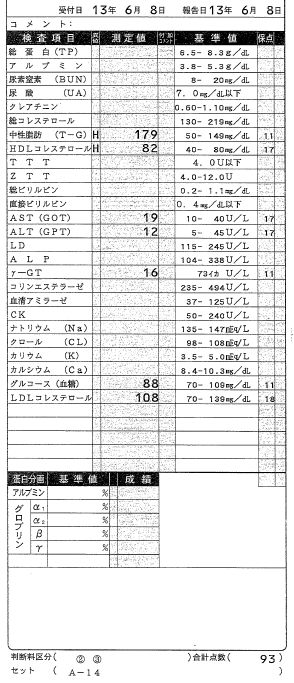 受付日 13年 6月 8日 報告日13年 6月 8日
コメント:
検査項目 測定値 付加コメント 基準値 保点
総蛋白(TP) 6.5- 8.3g/dL
アルブミン 3.8- 5.3g/dL
尿素窒素 (BUN) 8- 20mg/dL
尿酸 (UA) 7.0mg/dL以下
クレアチニン 0.60-1.10mg/dL
総コレステロール 130-219mg/dL
中性脂肪 (T-G) H 179 50-149mg/dL 11
HDLコレステロール H 82 40- 80mg/dL 17
TTT 4.0U以下
ZTT 4.0-12.0U
総ビリルビン 0.2- 1.1mg/dL
直接ビリルビン 0.4mg/dL以下
AST(GOT) 19 10- 40U/L 17
ALT(GPT) 12 5- 45U/L 17
LD 115-245U/L
ALP 104-338U/L
γ-GT 16 73イカ U/L 11
コリンエステラーゼ 235-494U/L
血清アミラーゼ 37-125U/L
CK 50-240U/L
ナトリウム (Na) 135-147mEq/L
クロール (CL) 98-108mEq/L
カリウム (K) 3.5- 5.0mEq/L
カルシウム (Ca) 8.4-10.3mg/dL
グルコース(血糖) 88 70-109mg/dL 11
LDLコレステロール 108 70-139mg/dL 18
蛋白分画 基準値 成績
アルブミン %
グロブリン α1 %
α2 %
β %
γ %
判断料区分( ② ③ )合計点数( 93)
セット ( A-14